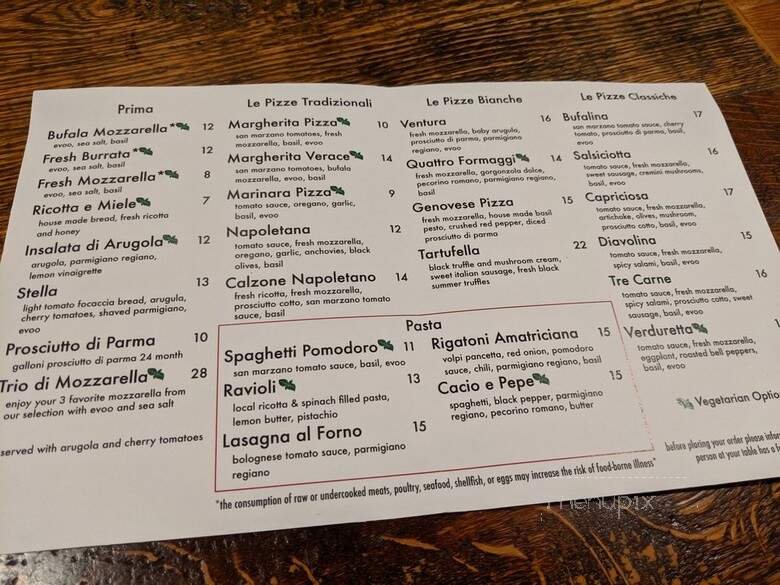 Prima
Bufala Mozzarella* 12
evoo, sea salt, basil
Fresh Burrata* 12
evoo, sea salt, basil
Fresh Mozzarella* 8
evoo, sea salt, basil
Ricotta e Miele 7
house made bread, fresh ricotta
and honey
Insalata di Arugola 12
arugula, parmigiano regiano,
lemon vinaigrette
Stella 13
light tomato focaccia bread, arugula,
cherry tomatoes, shaved parmigiano,
evoo
Prosciutto di Parma 10
galloni prosciutto di parma 24 month
Trio di Mozzarella 28
enjoy your 3 favorite mozzarella from
our selection with evoo and sea salt
served with arugola and cherry tomatoes
Le Pizze Tradizionali
Margherita Pizza 10
san marzano tomatoes, fresh
mozzarella, basil, evoo
Margherita Verace 14
san marzano tomatoes, bufala
mozzarella, evoo, basil
Marinara Pizza 9
tomato sauce, oregano, garlic,
basil, evoo
Napoletana 12
tomato sauce, fresh mozzarella,
oregano, garlic, anchovies, black
olives, basil
Calzone Napoletano 14
fresh ricotta, fresh mozzarella,
prosciutto cotto, san marzano tomato
sauce, basil
Le Pizze Bianche
Ventura 16
fresh mozzarella, baby arugula,
prosciutto di parma, parmigiano
regiano, evoo
Quattro Formaggi 14
fresh mozzarella, gorgonzola dolce,
pecorino romano, parmigiano regiano,
basil, evoo
Genovese Pizza 15
fresh mozzarella, house made basil
pesto, crushed red pepper, diced
prosciutto di parma
Tartufella 22
black truffle and mushroom cream,
sweet italian sausage, fresh black
summer truffles
Le Pizze Classiche
Bufalina 17
san marzano tomato sauce, cherry
tomato, prosciutto di parma, basil,
evoo
Salsiciotta 16
tomato sauce, fresh mozzarella,
sweet sausage, cremini mushrooms,
basil, evoo
Capriciosa 17
tomato sauce, fresh mozzarella,
artichoke, olives, mushroom,
prosciutto cotto, basil, evoo
Diavolina 15
tomato sauce, fresh mozzarella,
spicy salami, basil, evoo
Tre Carne 16
tomato sauce, fresh mozzarella,
spicy salami, prosciutto cotto, sweet
sausage, basil, evoo
Verduretta
tomato sauce, fresh mozzarella,
eggplant, roasted bell peppers,
basil, evoo
Pasta
Spaghetti Pomodoro 11
san marzano tomato sauce, basil, evoo
Ravioli 13
local ricotta & spinach filled pasta,
lemon butter, pistachio
Lasagna al Forno 15
bolognese tomato sauce, parmigiano
regiano
Rigatoni Amatriciana 15
volpi pancetta, red onion, pomodoro
sauce, chili, parmigiano regiano, basil
Cacio e Pepe 15
spaghetti, black pepper, parmigiano
regiano, pecorino romano, butter
Vegetarian Optio
before placing your order please infor
person at your table has a f
*the consumption of raw or undercooked meats, poultry, seafood, shellfish, or eggs may increase the risk of food-borne illness"
menupix